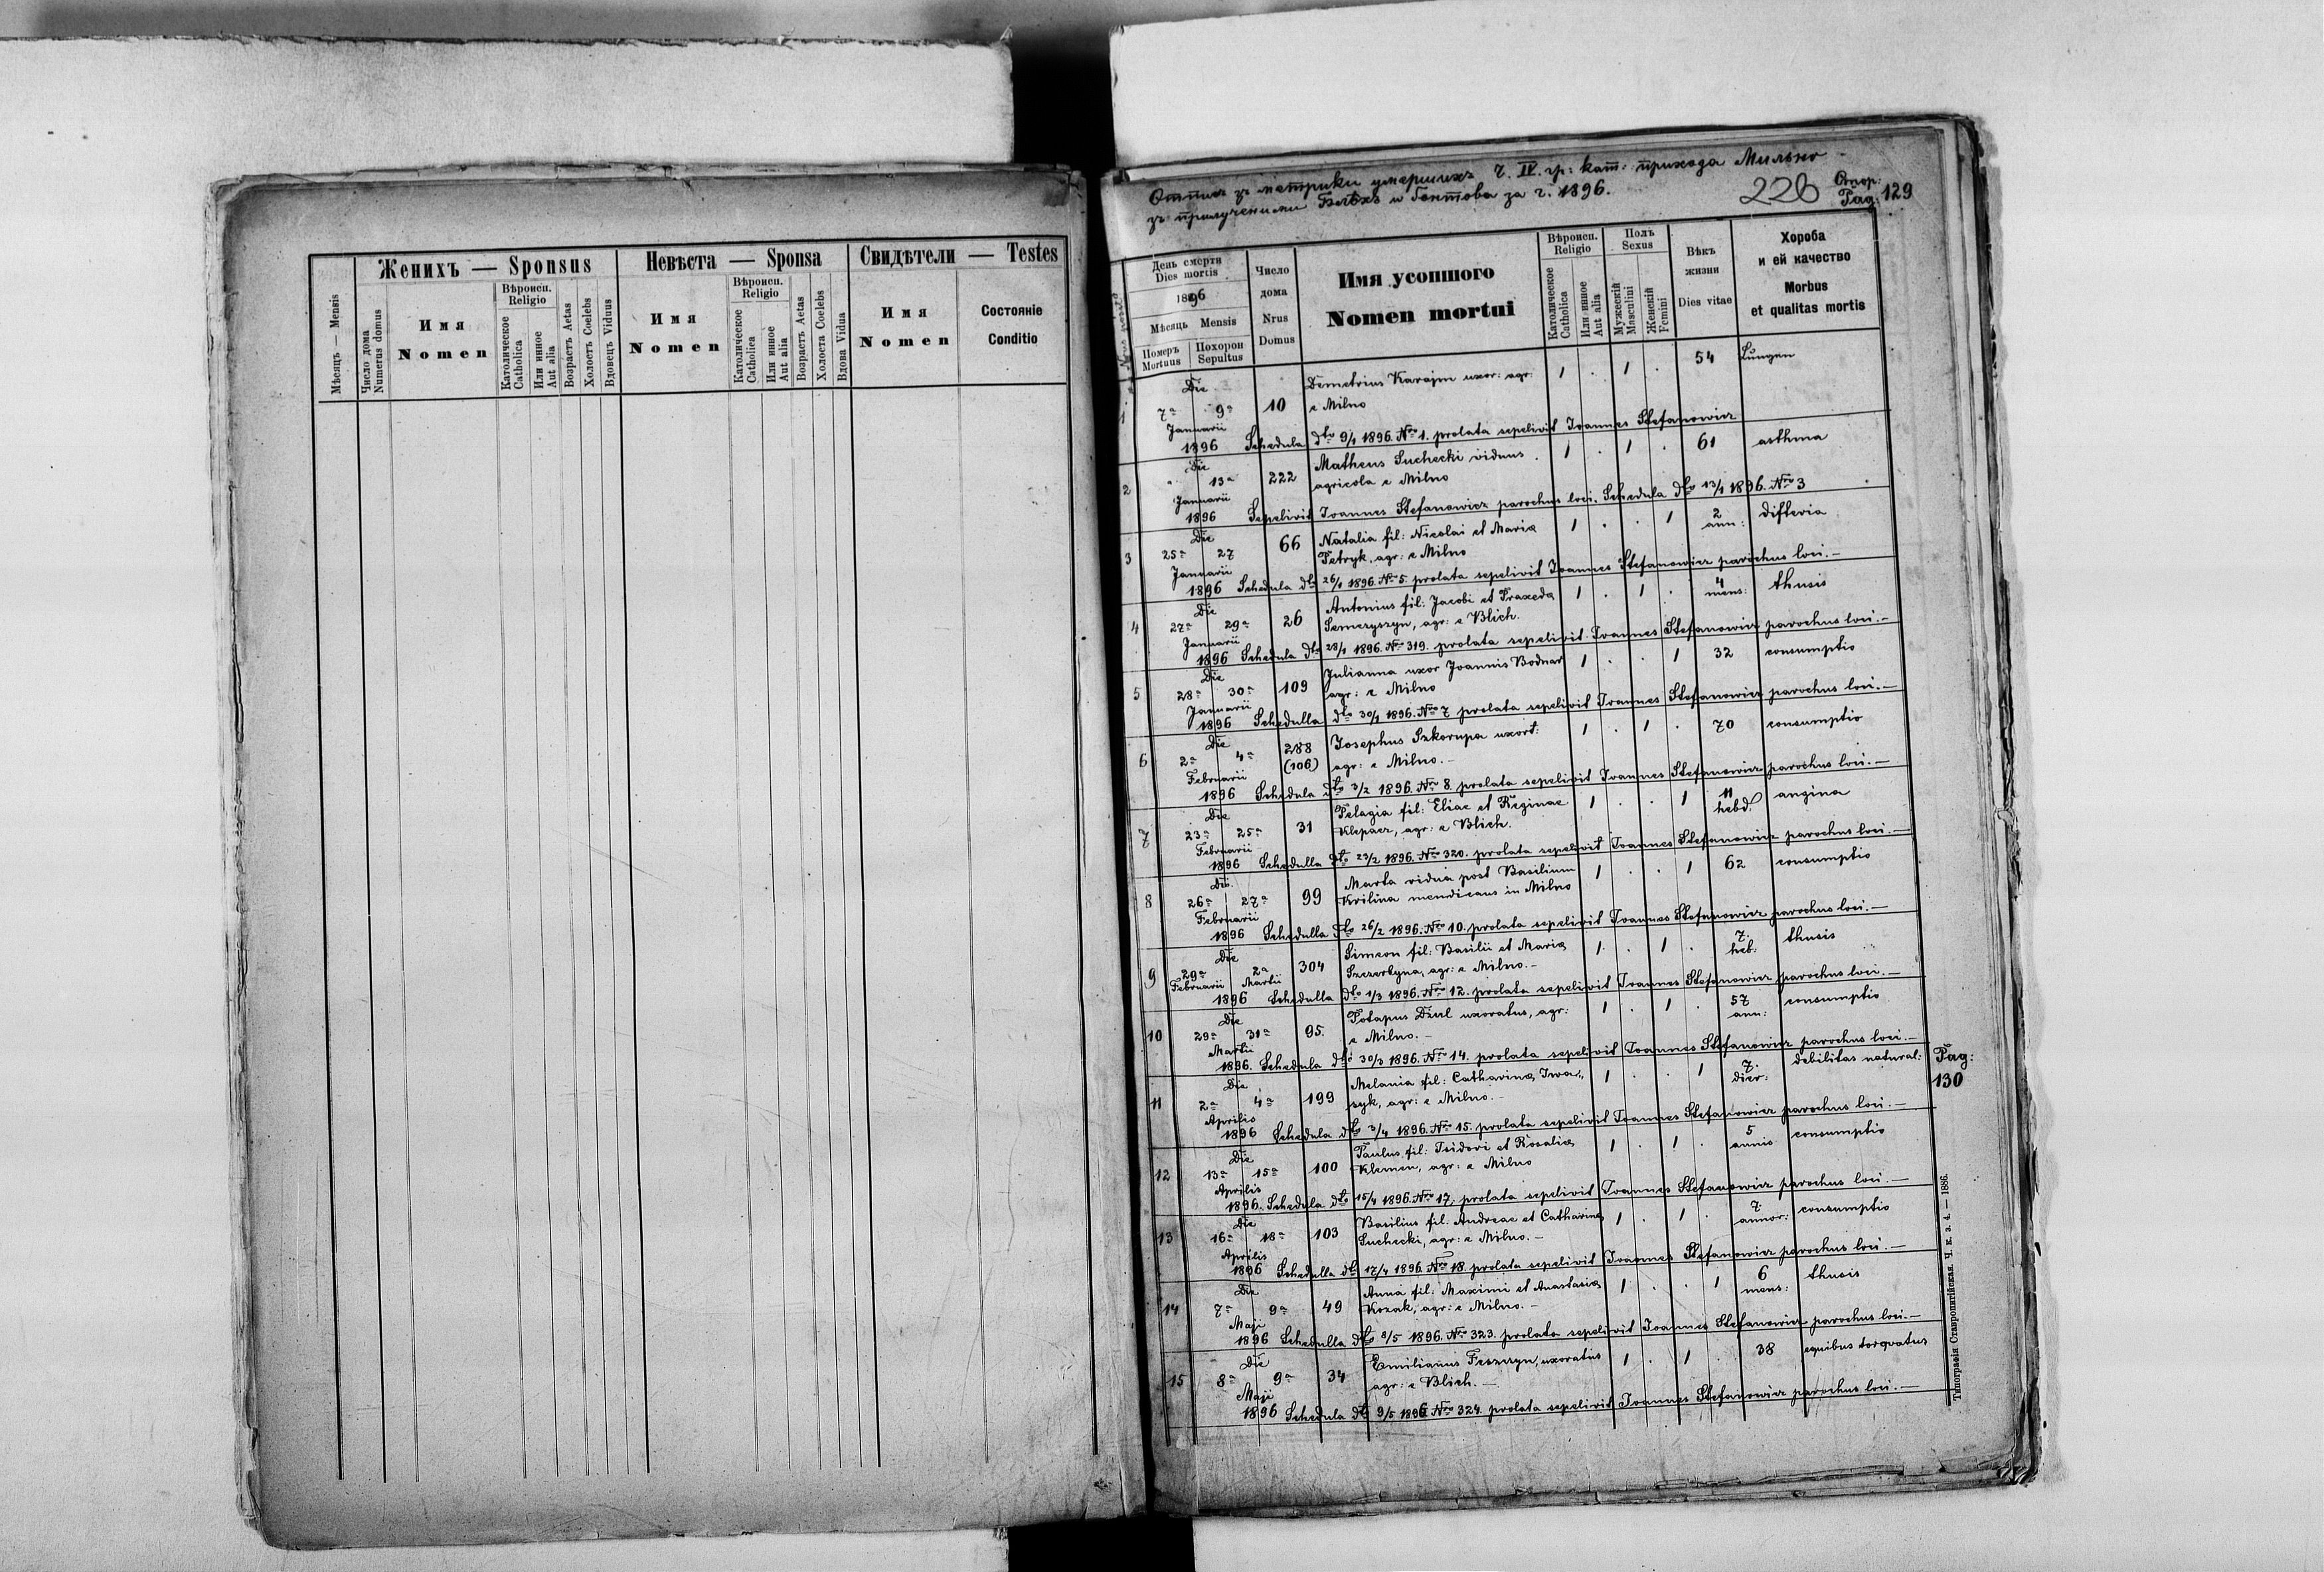 Женихъ — Sponsus
Невѣста — Sponsa
Свидѣтели — Testes
Мѣсяць — Mensis
Число дома
Numerus domus
Имя
Nomen
Вѣроисп.
Religio
Католическое
Catholica
Или инное
Aut alia
Возрастъ Aetas
Холостъ Coelebs
Вдовець Viduus
Имя
Nomen
Вѣроисп.
Religio
Католическое
Catholica
Или инное
Aut alia
Возрастъ Aetas
Холоста Coelebs
Вдова Vidua
Имя
Nomen
Состояніе
Conditio
Отпис зъ метрики умершихъ Ч. IV. гр: кат: прихода Мильно
зъ прилученіями Блѣхъ и Гонтова за г. 1896.
226
Стор:
Pag: 129
День смерти
Dies mortis
1896
Мѣсяць Mensis
Померъ
Mortuus
Похорон
Sepultus
Число
дома
Nrus
Domus
Имя усопшого
Nomen mortui
Вѣроисп.
Religio
Католическое
Catholica
Или инное
Aut alia
Полъ
Sexus
Мужескій
Masculini
Женскій
Femini
Вѣкъ
жизни
Dies vitae
Хороба
и ей качество
Morbus
et qualitas mortis
Die
1 7ª 9ª 10 Demetrius Karajm uxor: agr: 1 . 1 . 54 Lungen
Januarii e Milno
1896 Schedula dto 9/1 1896. Nro 1. prolata sepelivit Joannes Stefanowicz
Die
2 " 13ª 222 Matheus Suchecki viduus 1 . 1 . 61 asthma
Januarii agricola e Milno
1896 Sepelivit Joannes Stefanowicz parochus loci. Schedula dto 13/1 1896. Nro 3
Die
3 25ª 27 66 Natalia fil: Nicolai et Maria 1 . . 1 2 ann: difteria
Januarii Petryk, agr: e Milno
1896 Schedula dto 26/1 1896. Nro 5. prolata sepelivit Joannes Stefanowicz parochus loci. —
Die
4 27ª 29ª 26 Antonius fil: Jacobi et Praxeda 1 . 1 . 4 mens: thusis
Januarii Semczyszyn, agr: e Blich.
1896 Schedula dto 28/1 1896. Nro 319. prolata sepelivit Joannes Stefanowicz parochus loci. —
Die
5 28ª 30ª 109 Julianna uxor Joannis Bodnar 1 . . 1 32 consumptio
Januarii agr: e Milno
1896 Schedulla dto 30/1 1896. Nro 7 prolata sepelivit Joannes Stefanowicz parochus loci. —
Die
6 2ª 4ª 288 (106) Josephus Szkorupa uxort: 1 . 1 . 70 consumptio
Februarii agr: e Milno. —
1896 Schedula dto 3/2 1896. Nro 8. prolata sepelivit Joannes Stefanowicz parochus loci. —
Die
7 23ª 25ª 31 Pelagia fil: Eliae et Reginae 1 . . 1 11 hebd. angina
Februarii Klepacz, agr: e Blich.
1896 Schedulla dto 23/2 1896. Nro 320. prolata sepelivit Joannes Stefanowicz parochus loci. —
Die
8 26ª 27ª 99 Marta vidua post Basilium 1 . . 1 62 consumptio
Februarii Krilina mendicans in Milno
1896 Schedulla dto 26/2 1896. Nro 10. prolata sepelivit Joannes Stefanowicz parochus loci. —
Die
9 29ª 2ª 304 Simeon fil: Basilii et Maria 1 . 1 . 7 heb: thusis
Februarii Martii Szczerbyna, agr: e Milno. —
1896 Schedulla dto 1/3 1896. Nro 12. prolata sepelivit Joannes Stefanowicz parochus loci. —
Die
10 29ª 31ª 95. Potapus Dżul uxoratus, agr: 1 . 1 . 57 ann: consumptio
Martii e Milno. —
1896. Schedula dto 30/3 1896. Nro 14. prolata sepelivit Joannes Stefanowicz parochus loci. —
Die
11 2ª 4ª 199 Melania fil: Catharina, Iwa- 1 . . 1 7. dier: debilitas natural: Pag: 130
Aprilis syk, agr: e Milno. —
1896 Schedula dto 3/4 1896. Nro 15. prolata sepelivit Joannes Stefanowicz parochus loci. —
Die
12 13ª 15ª 100 Paulus fil: Isidori et Rosalia 1 . 1 . 5 annis consumptio
Aprilis Klemen, agr: e Milno
1896. Schedula dto 15/4 1896. Nro 17. prolata sepelivit Joannes Stefanowicz parochus loci. —
Die
13 16ª 18ª 103 Basilius fil. Andreae et Catharina 1 . 1 . 7. annor: consumptio
Aprilis Suchecki, agr: e Milno. —
1896 Schedulla dto 17/4 1896. Nro 18. prolata sepelivit Joannes Stefanowicz parochus loci. —
Die
14 7ª 9ª 49 Anna fil: Maximi et Anastasia 1 . . 1 6 mens: thusis
Maji Kozak, agr: e Milno. —
1896 Schedulla dto 8/5 1896. Nro 323. prolata sepelivit Joannes Stefanowicz parochus loci. —
Die
15 8ª 9ª 34 Emilianus Feszczyn, uxoratus 1 . 1 . 38 equibus torqvatus
Maji agr: e Blich. —
1896 Schedula dto 9/5 1896. Nro 324. prolata sepelivit Joannes Stefanowicz parochus loci. —
Типографія Ставропигійская. Ч. к. з. 4. — 1886.